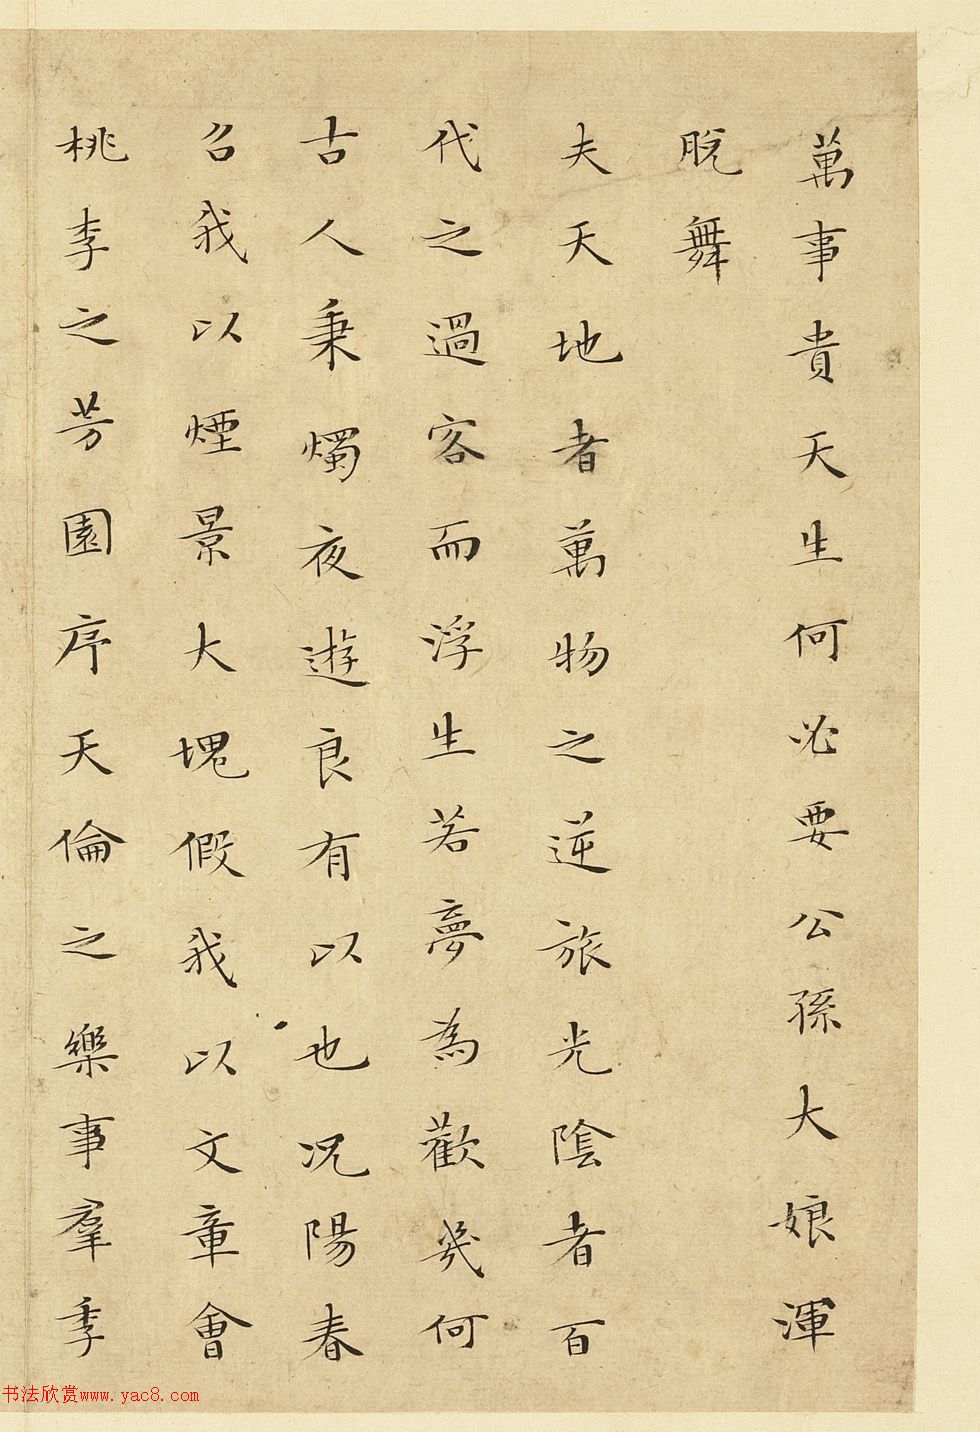 萬事貴天生何必要公孫大娘渾
脫舞
夫天地者萬物之逆旅光陰者百
代之過客而浮生若夢為歡幾何
古人秉燭夜遊良有以也况陽春
召我以煙景大塊假我以文章會
桃李之芳園序天倫之樂事羣季
书法欣赏www.yac8.com